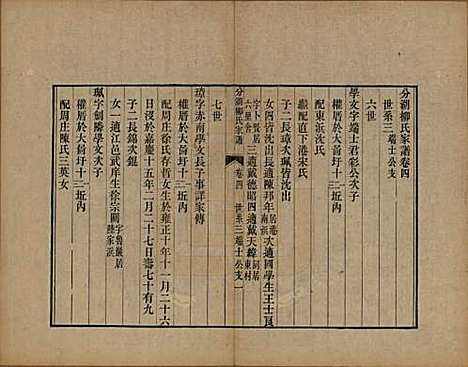 分湖柳氏家譜卷四
世系三 端士公支
六世
學文字端士君彩公次子
權厝於大勝圩十三坵內
配東浜沈氏
繼配直下港宋氏
子二長璋次珮皆沈出
女四皆沈出長適陳邦年居港南浜次適國學生王士良
字卜賢居六里舍三適戴德昭四適戴天緯居東村
分湖柳氏家譜 卷四 世系三 端士公支 一
七世
璋字赤南學文長子事詳家傳
權厝於大勝圩十三坵內
配周庄徐氏存哲女生於雍正十年十一月二十六
日沒於嘉慶十五年二月二十七日壽七十有九
子二長錦次錕
女一適江邑武庠生徐宗關字魯巖居陸家浜
珮字劍勝學文次子
權厝於大勝圩十三坵內
配周庄陳氏三英女